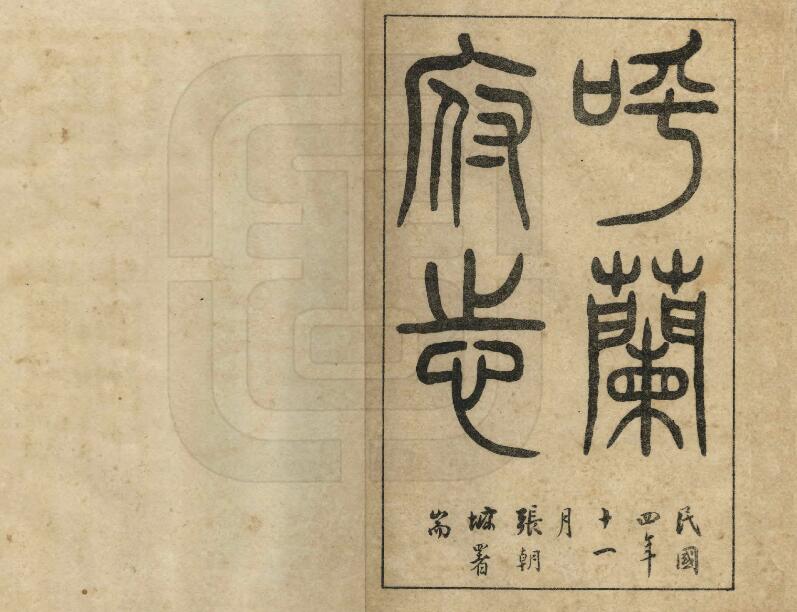 呼蘭
府志
民國
四年
十一
月
張朝
墉署
耑